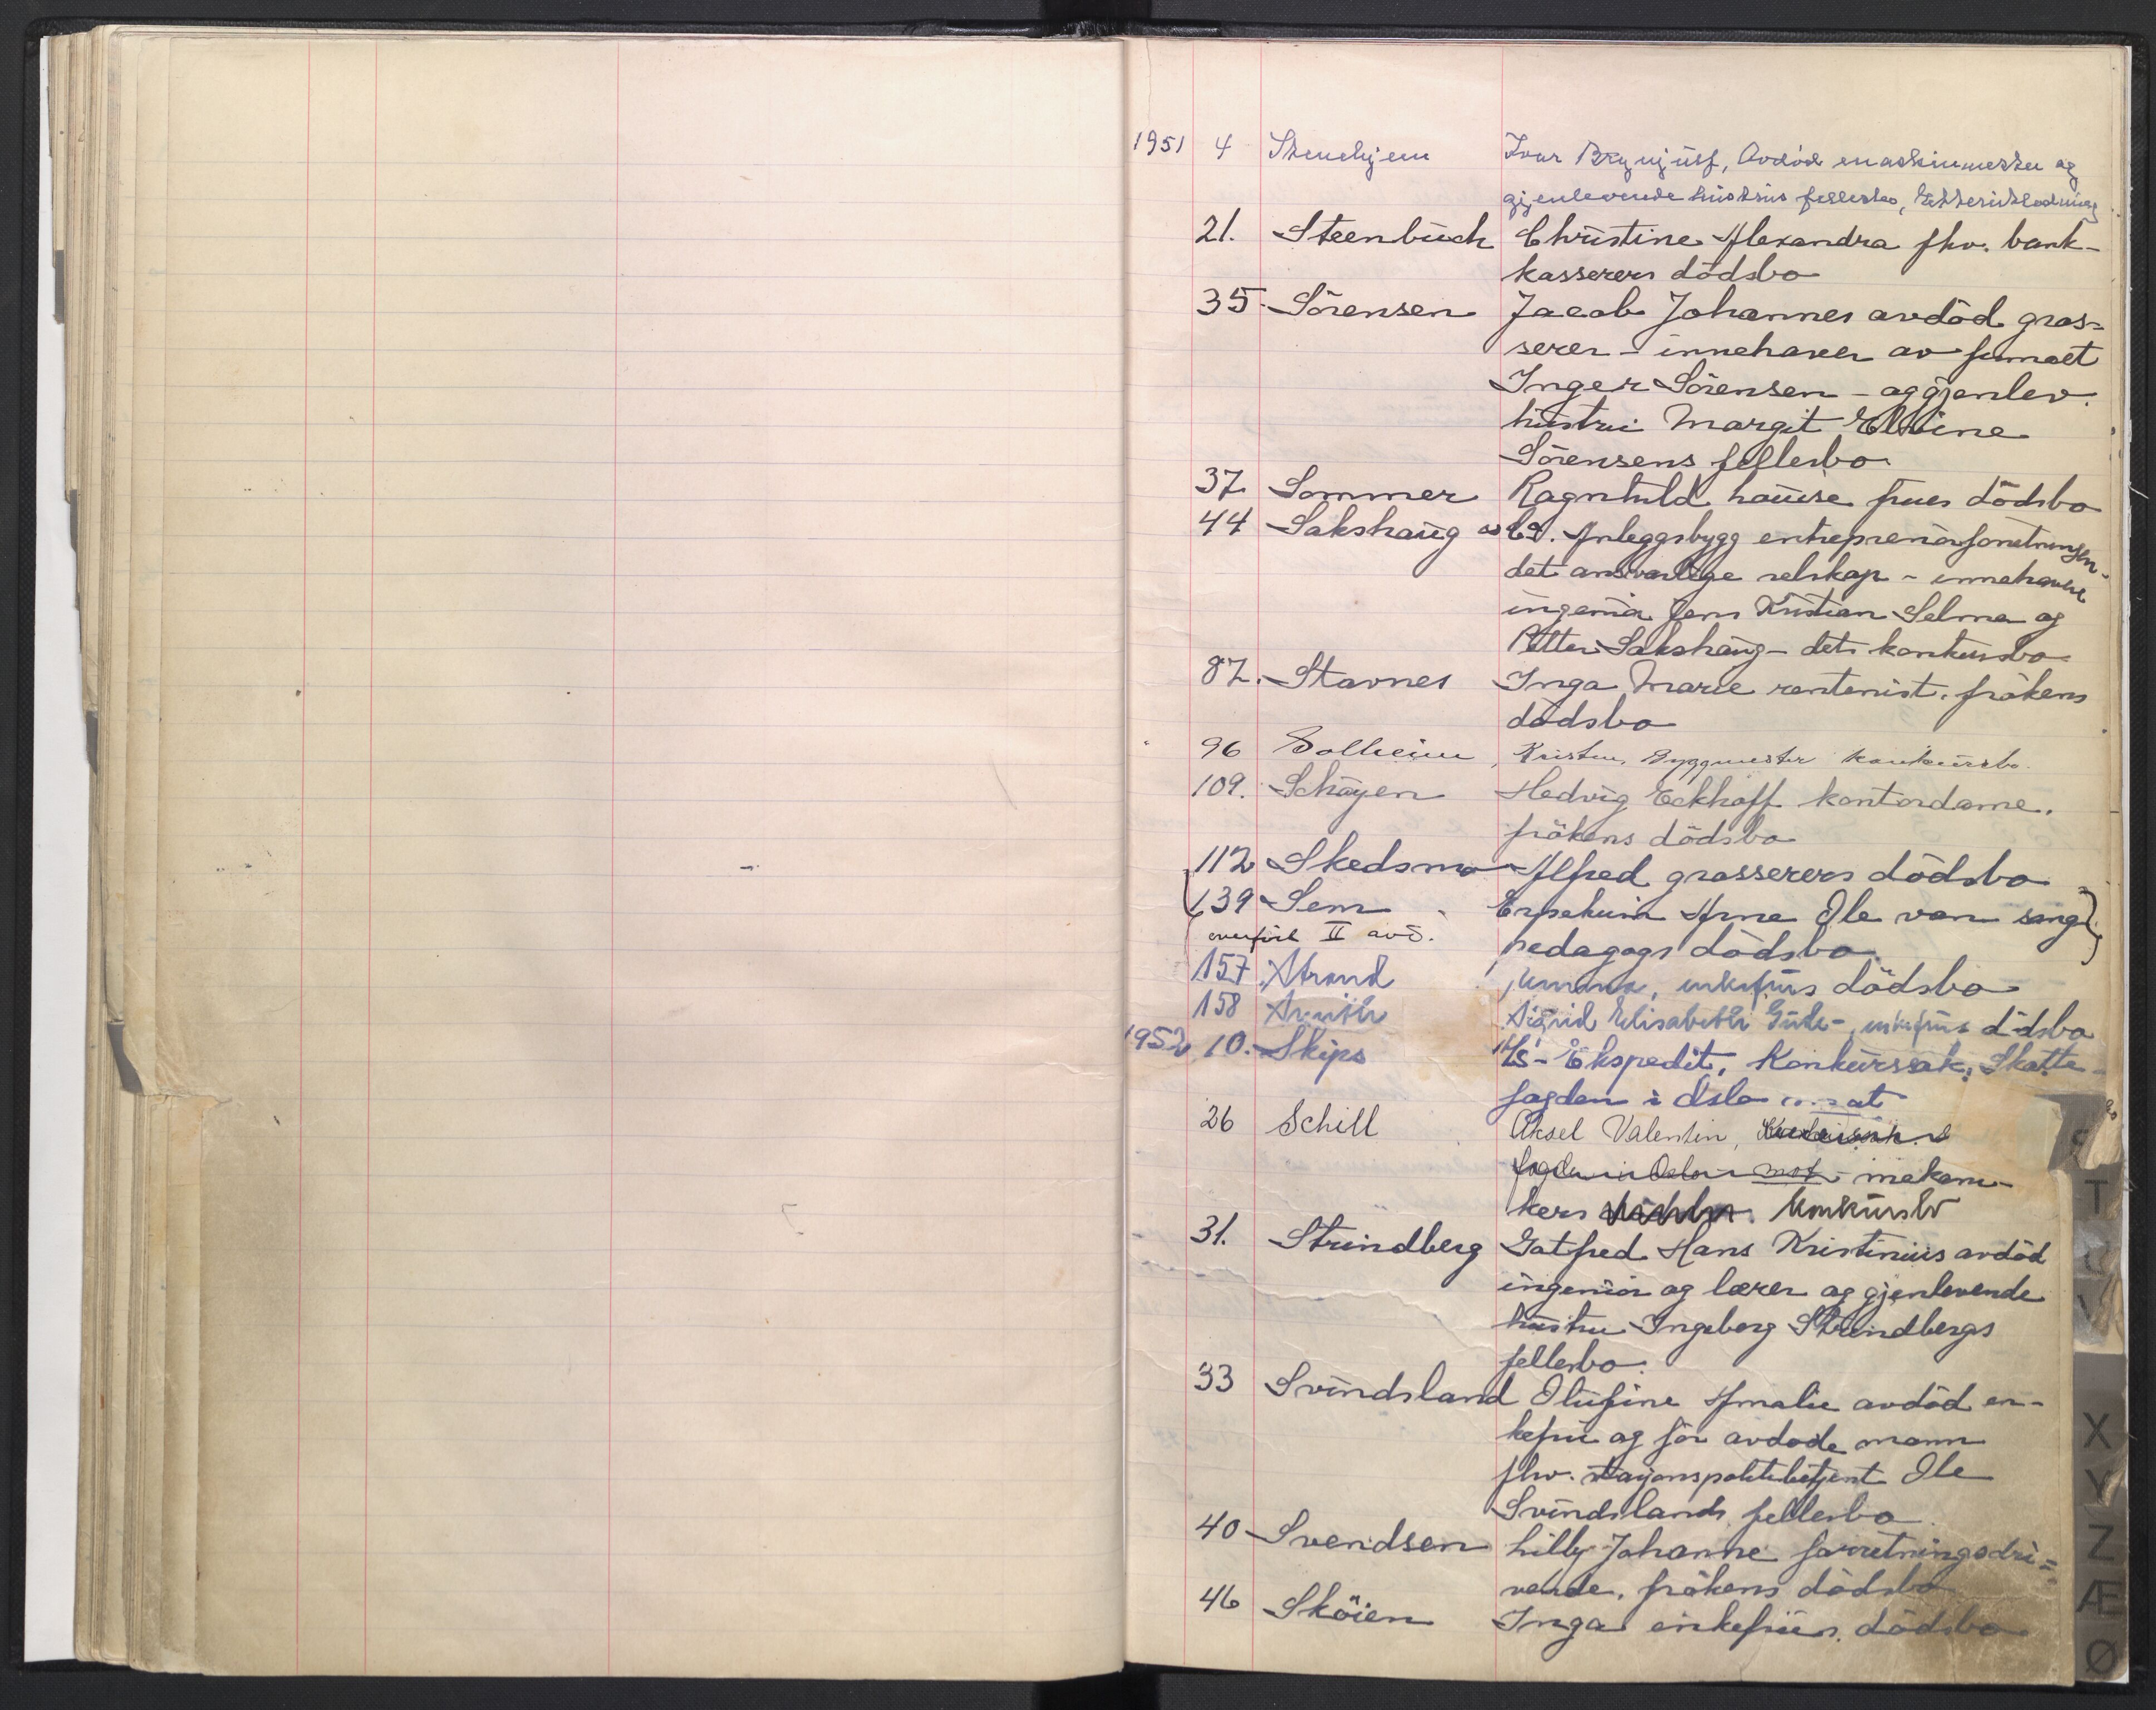 1951 4 Stenehjem Ivar Brynjulf, Avdød maskinmester og
gjenlevende hustrus fellesbo, Etterutlodning
21. Steenbuch Christine Alexandra fhv. bank-
kasserers dödsbo
35. Sörensen Jacob Johannes avdöd gros-
serer - innehaver av firmaet
Inger Sörensen - og gjenlev.
hustru Margit Elvine
Sörensens fellesbo
37. Sommer Ragnhild Louise frues dödsbo
44 Sakshaug & Co. Anleggsbygg entreprenörforretningen
det ansvarlige selskap - innehavere
ingeniör Jens Kristian Selmer og
Petter Sakshaug - dets konkursbo
87. Stavnes Inga Marie rentenist. frökens
dödsbo
96 Solheim, Kristen, Byggmester konkursbo.
109. Schøyen Hedvig Eckhoff kontordame.
frökens dödsbo
112 Skedsmo Alfred grosserers dödsbo
(139 Sem Arne Ole van sang)
overfört II avd. pedagogs dödsbo
157 Strand enkefrus dödsbo
158 Sigrid Elisabeth Gude-, enkefrus dödsbo
1952 10. Skips A/S - Ekspedit, Konkurssak, Skatte-
fogden i Oslo mot
26 Schill Aksel Valentin,
fogden i Oslo mot - mekani-
kers konkursbo
31. Strindberg Gotfred Hans Kristinius avdöd
ingeniör og lærer og gjenlevende
hustru Ingeborg Strindbergs
fellesbo.
33 Svindsland Olufine Amalie avdöd en-
kefru og för avdöde mann
fhv. stasjonspolitibetjent Ole
Svindslands fellesbo.
40 Svendsen Lilly Johanne forretningsdri-
vende, frökens dödsbo
46 Sköien Inga enkefrues dödsbo
S
T
U
V
X
Y
Z
Æ
Ø